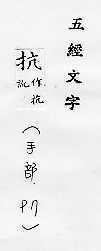 五經文字
抗
作抗
訛
(手部.